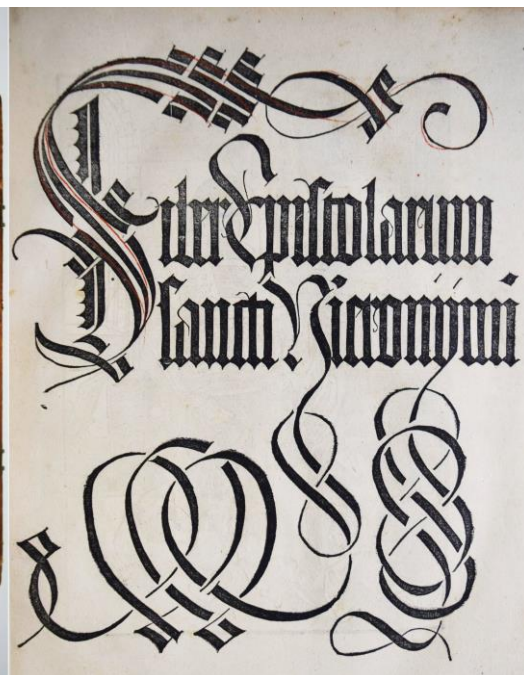 Liber Epistolarum
sancti Hieronymi